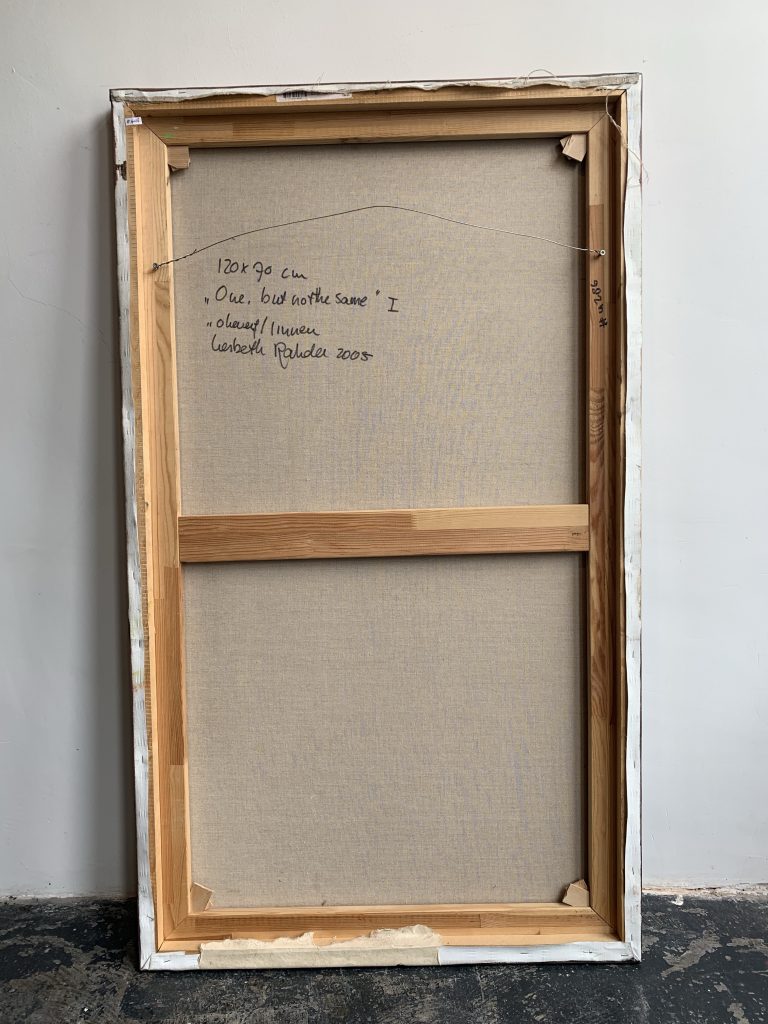 120 x 70 cm
„One, but not the same" I
„olieverf/linnen
Liesbeth Rahder 2005